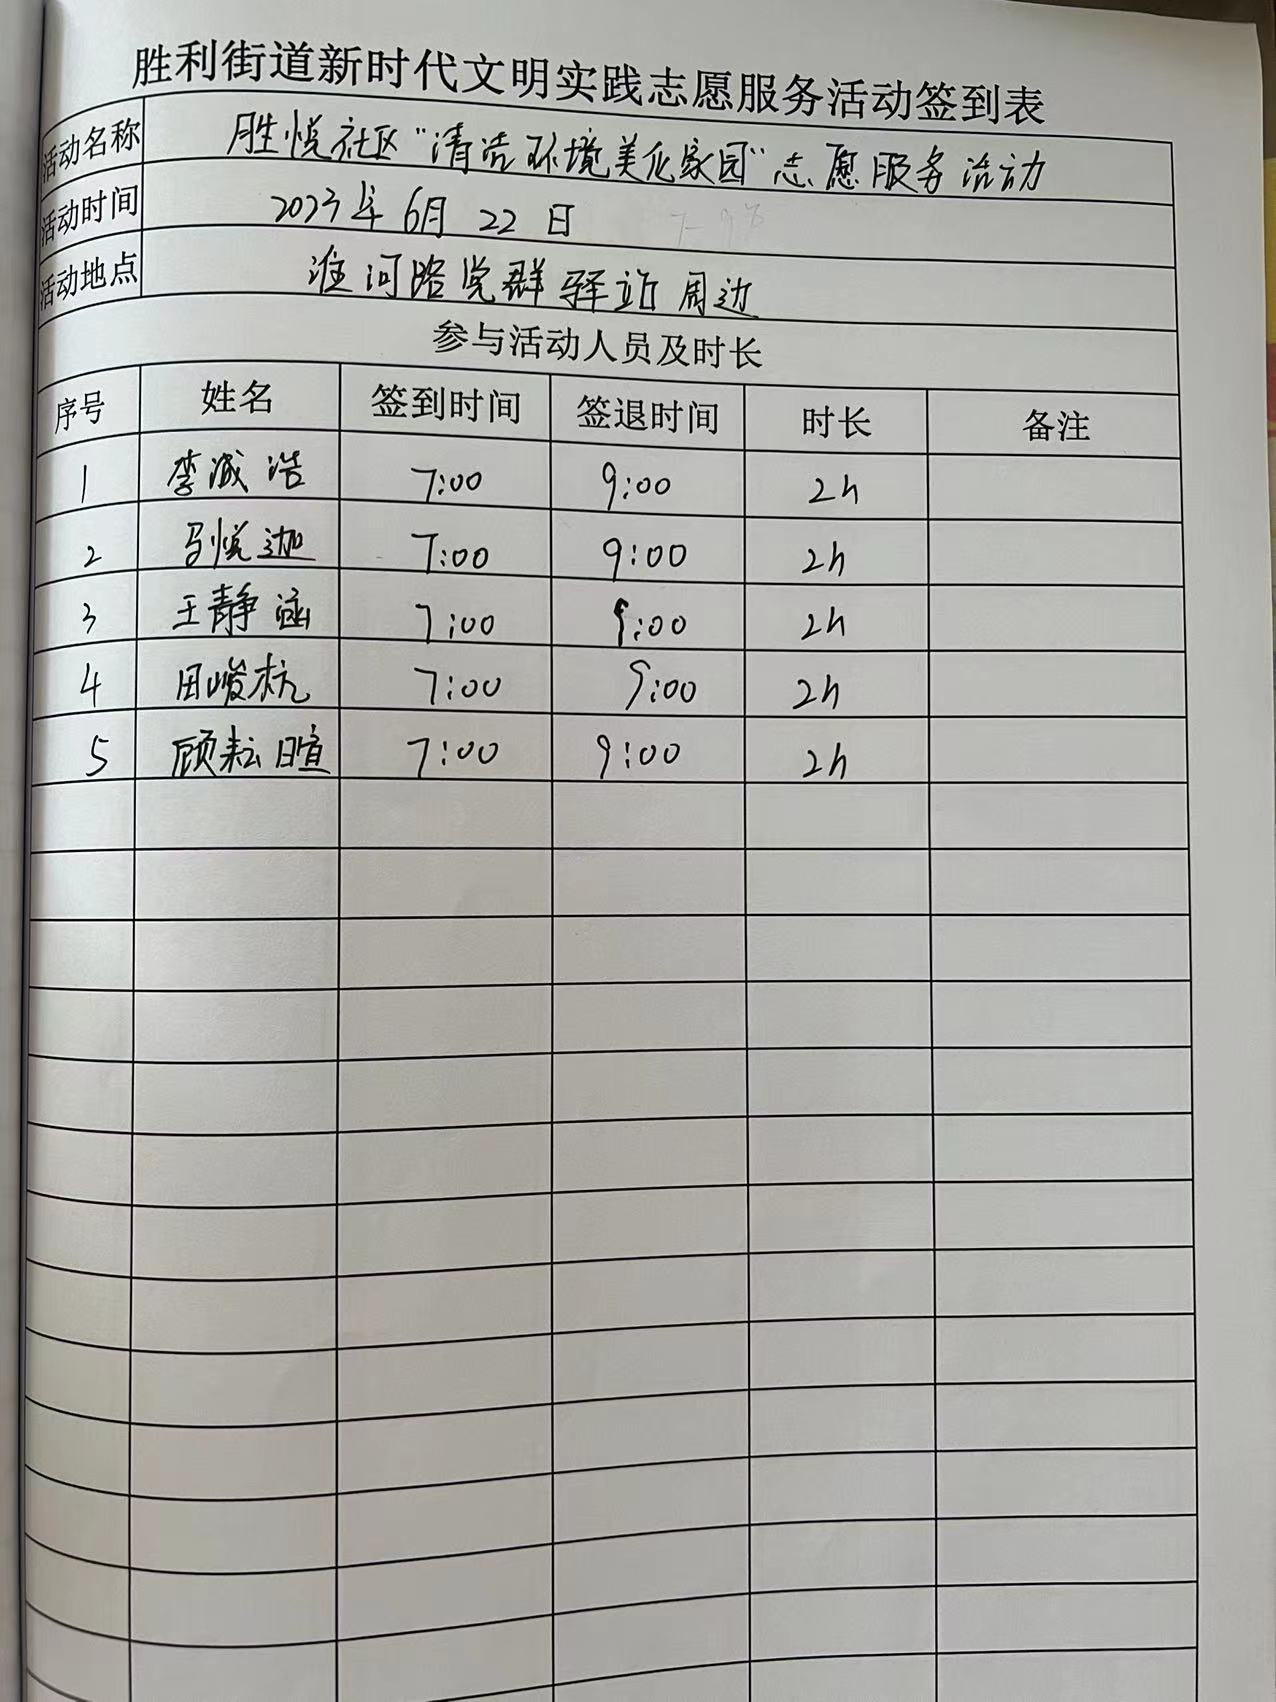 胜利街道新时代文明实践志愿服务活动签到表
活动名称 胜悦社区“清洁环境美化家园”志愿服务活动
活动时间 2023年6月22日
活动地点 淮河路党群驿站周边
参与活动人员及时长
序号 姓名 签到时间 签退时间 时长 备注
1 李诚浩 7:00 9:00 2h
2 马悦迦 7:00 9:00 2h
3 王静涵 7:00 9:00 2h
4 田峻杭 7:00 9:00 2h
5 顾耘暄 7:00 9:00 2h